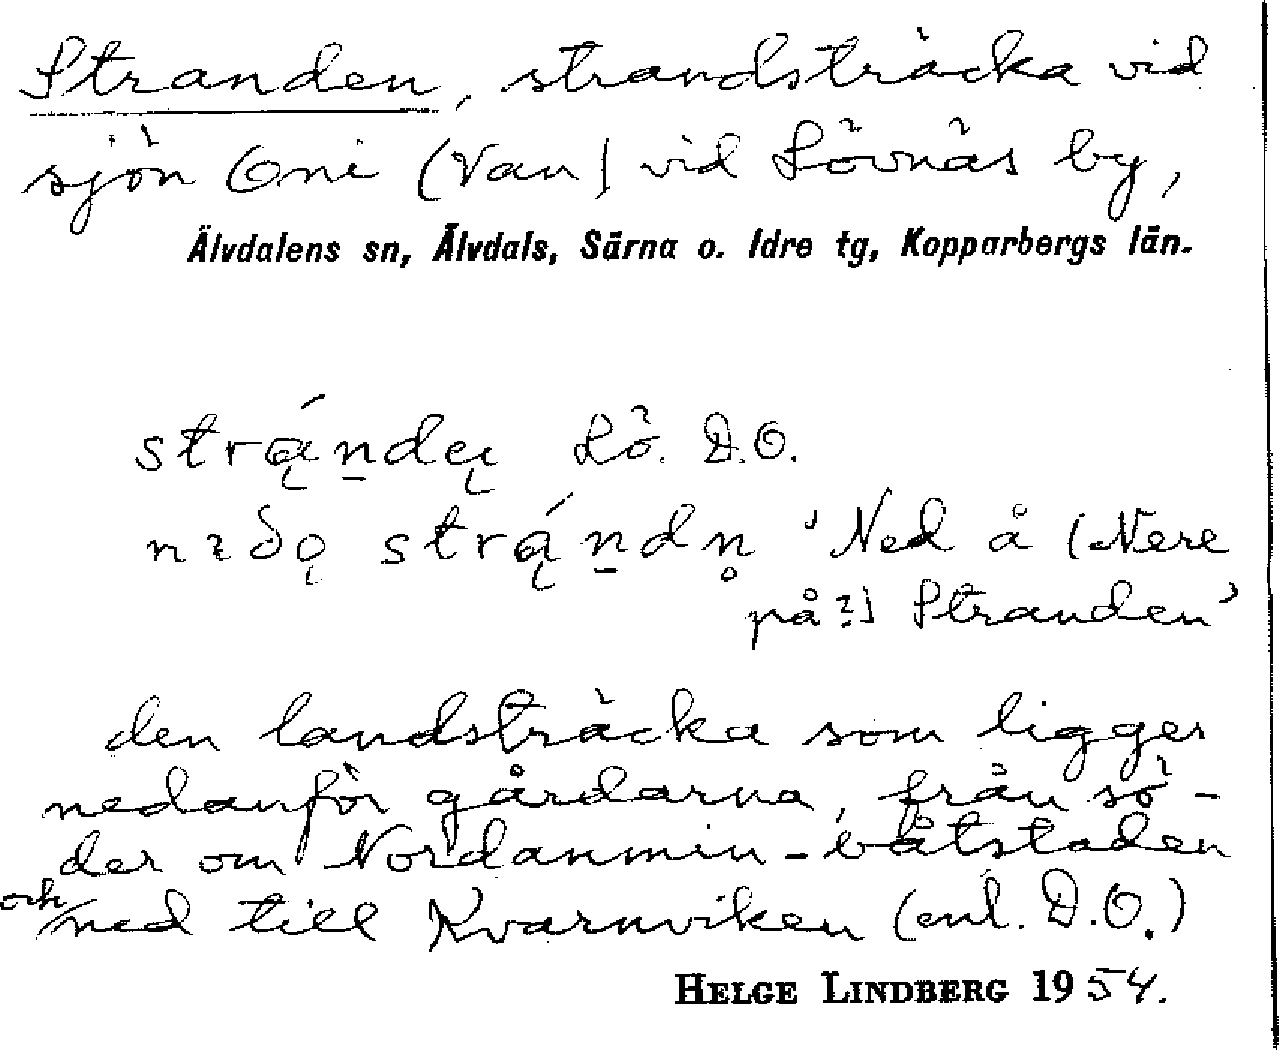 Stranden, strandsträcka vid
sjön Oni (Van) vid Lövnäs by,
Älvdalens sn, Älvdals, Särna o. Idre tg, Kopparbergs län.
strą́n̠dęı Lö. D.O.
nꝛðǫ strą́n̠dn̥ 'Ned å (Nere
på?) Stranden'
den landsträcka som ligger
nedanför gårdarna, från sö-
der om Nordanmin-båtstaden
och ned till Kvarnviken (enl. D.O.)
HELGE LINDBERG 1954.